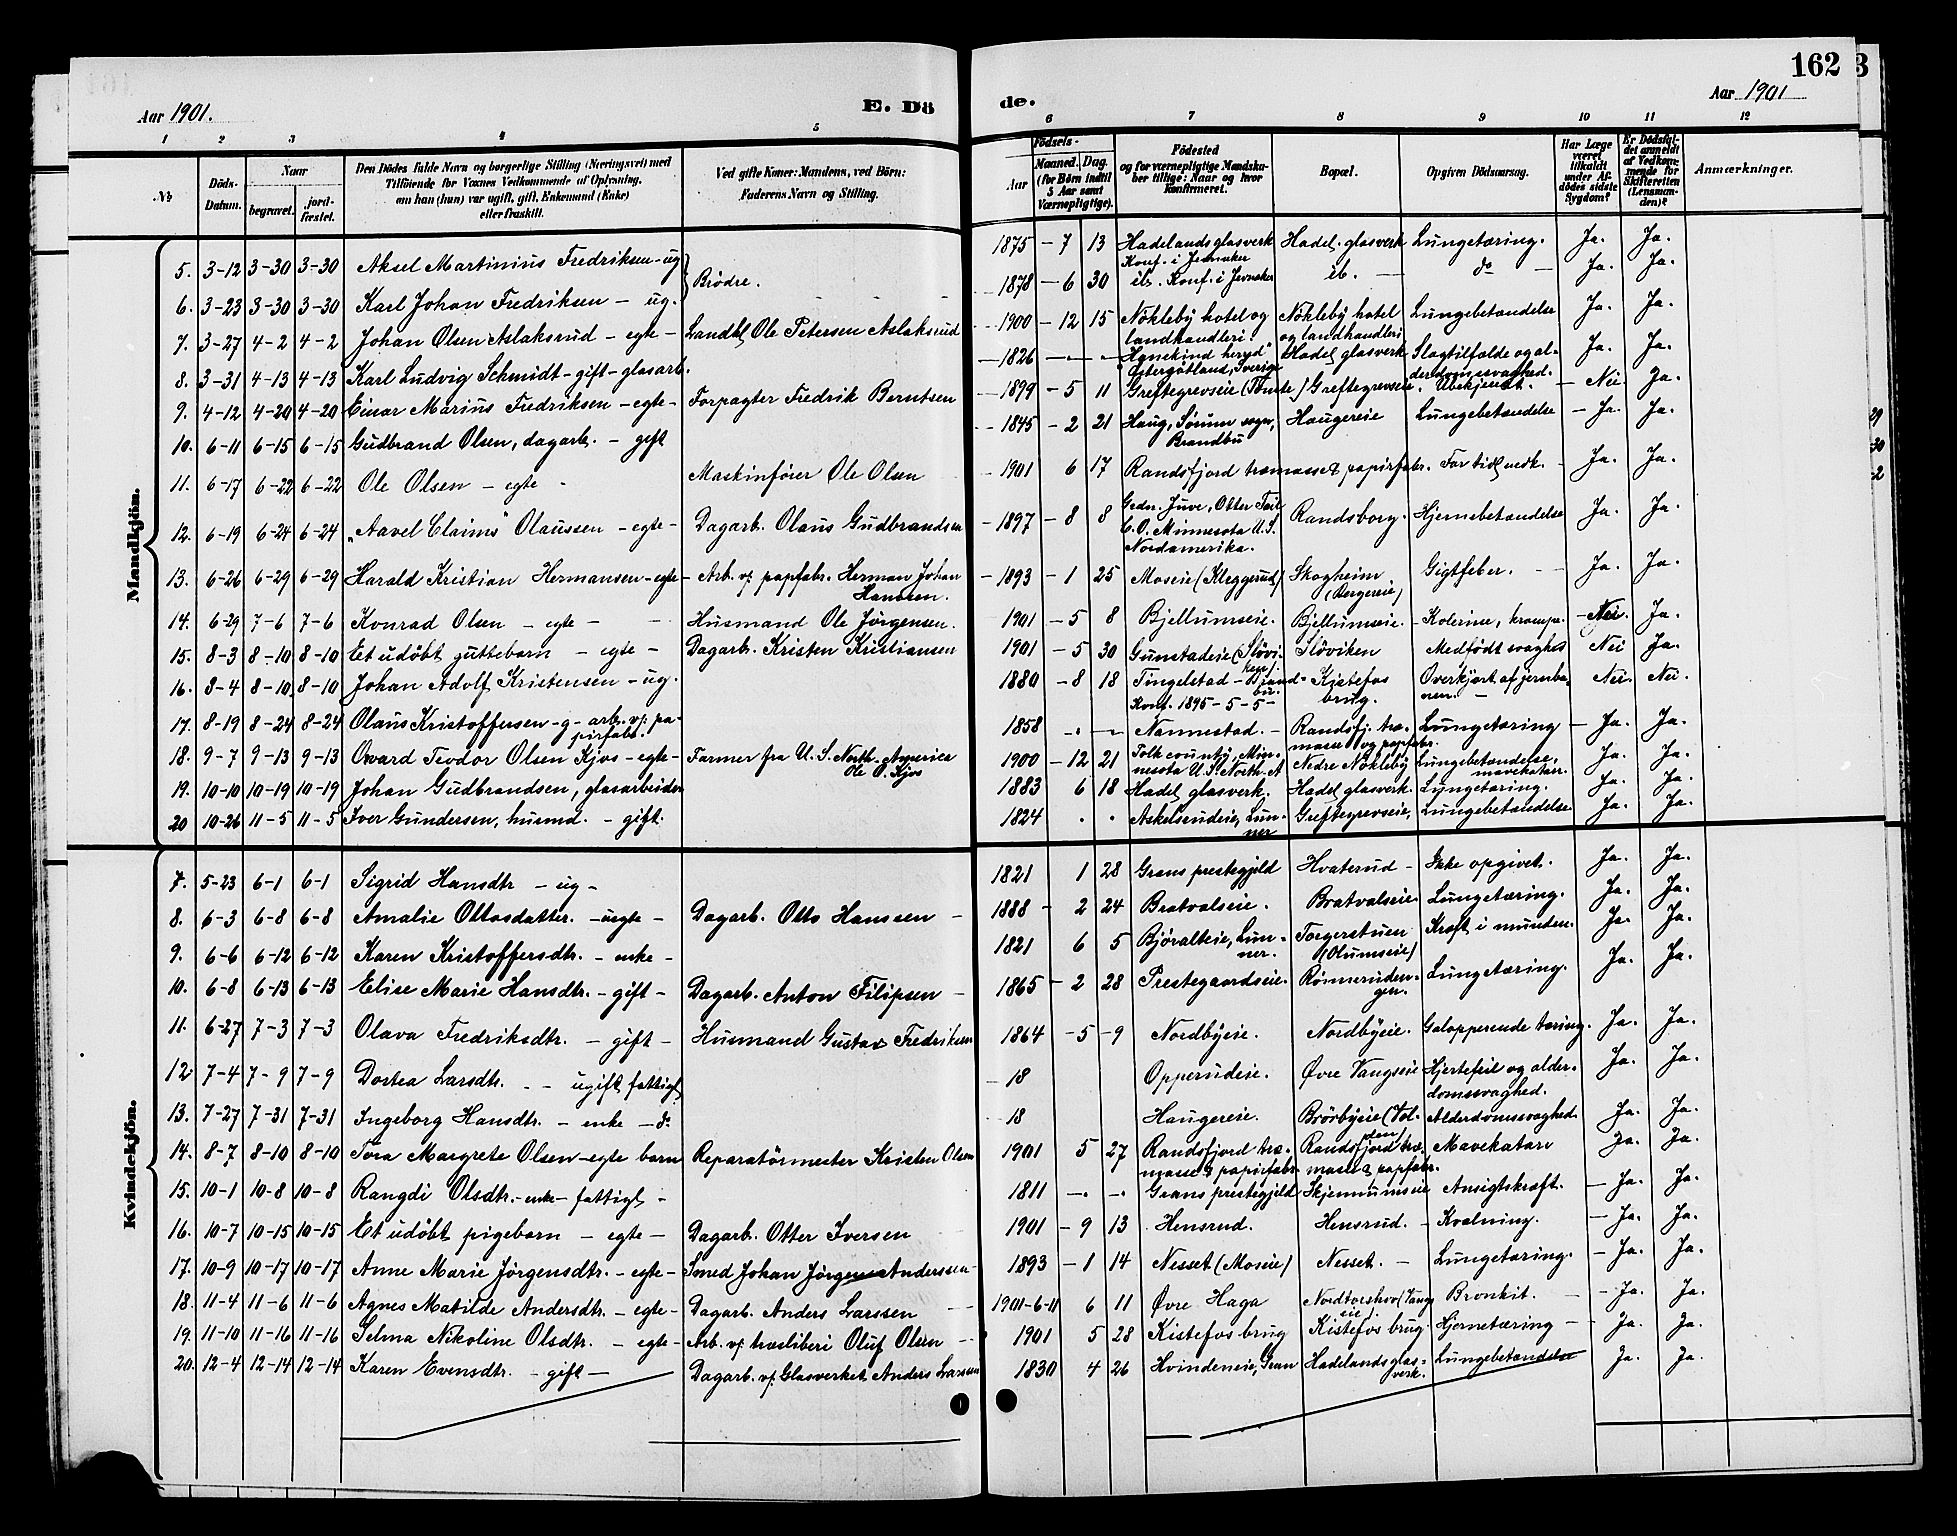 162 3
Aar 1901. E. Dö de. Aar 1901
1 2 3 4 5 6 7 8 9 10 11 12
No
Döds-Datum.
Naar
begravet.
jord-fæstet.
Den Dödes fulde Navn og borgerlige Stilling (Næringsvei) med
Tilföiende for Voxnes Vedkommende af Oplysning,
om han (hun) var ugift, gift, Enkemand (Enke)
eller fraskilt.
Ved gifte Koner: Mandens, ved Börn:
Faderens Navn og Stilling.
Födsels-
Aar
Maaned. Dag.
(for Börn indtil
5 Aar samt
Værnepligtige).
Födested
og for værnepligtige Mandska-
ber tillige: Naar og hvor
Konfirmeret.
Bopæl.
Opgiven Dödsaarsag.
Har Læge
været
tilkaldt
under Af-
dödes sidste
Sygdom?
Er Dödsfal-
det anmeldt
af Vedkom-
mende for
Skifteretten
(Lensman-
den)?
Anmærkninger.
Mandkjön.
5. 3-12 3-30 3-30 Aksel Martinius Fredriksen - ug 1875 - 7 13 Hadelandsglasverk Konf. i Jevnaker Hadel. glasverk Lungetæring. Ja. Ja.
Brödre.
6. 3-23 3-30 3-30 Karl Johan Fredriksen - ug. 1878 - 6 30 ib. Konf. i Jevnaker ib. - do - Ja. Ja.
7. 3-27 4-2 4-2 Johan Olsen Aslaksrud - egte - Landhl. Ole Petersen Aslaksrud 1900 - 12 15 Nökleby hotel og landhandleri. Nökleby hotel og landhandleri Lungebetændelse Ja. Ja.
8. 3-31 4-13 4-13 Karl Ludvig Schmidt - gift - glasarb. 1826 - - - Östergötland, Sverige Hadel. glasverk Slagtilfælde og alderdomssvaghed. Ja. Ja.
9. 4-12 4-20 4-20 Einar Marius Fredriksen - egte - Forpagter Fredrik Berntsen 1899 - 5 11 Greftegrevseie (Tömte) Greftegrevseie. Ubekjendt. - Nei. Ja.
10. 6-11 6-15 6-15 Gudbrand Olsen, dagarb. - gift 1845 - 2 21 Haug, Sörum sogn, Brandbu Haugereie Lungebetændelse - Ja. Ja.
11. 6-17 6-22 6-22 Ole Olsen - egte - Maskinförer Ole Olsen - 1901 6 17 Randsfjord træmasse & papirfabr. For tidl. nedk. - Ja. Ja.
12. 6-19 6-24 6-24 "Aavel Claims" Olaussen - egte - Dagarb. Olaus Gudbrandsen - 1897 - 8 8 Otter Tail C.O. Minnesota U.S. Nordamerika. Randsborg. Hjernebetændelse Ja. Ja.
13. 6-26 6-29 6-29 Harald Kristian Hermansen - egte - Arb. v/ papfabr. Herman Johan Hansen. - 1893 - 1 25 Moseie (Kleggerud) Skogheim (Bergereie) Gigtfeber. - Ja. Ja.
14. 6-29 7-6 7-6 Konrad Olsen - egte - Husmand Ole Jörgensen. 1901 - 5 8 Bjellumseie. Bjellumseie. - Kolerine, krampe. - Nei. Ja.
15. 8-3 8-10 8-10 Et udöbt guttebarn - egte - Dagarb. Kristen Kristiansen 1901 - 5 30 Gunstadeie (Slöviken). Slöviken Medfödt svaghed Nei Ja.
16. 8-4 8-10 8-10 Johan Adolf Kristensen - ug. 1880 - 8 18 Tingelstad - Brandbu. Konf. 1895 - 5 - 5 - Kistefos brug. Overkjört af jernbanen. - Nei. Nei.
17. 8-19 8-24 8-24 Olaus Kristoffersen - g - arb. v/ papirfabr. 1858 - - Nannestad. - Randsfj. træmasse og papfabr. Lungetæring - Ja. Ja.
18. 9-7 9-13 9-13 Ovard Teodor Olsen Kjos - egte - Farmer fra U.S. North-America Ole O. Kjos 1900 - 12 21 Polk county, Minnesota U.S. North. A Nedre Nökleby Lungebetændelse, mavekatarr. Ja. Ja.
19. 10-10 10-19 10-19 Johan Gudbrandsen, glasarbeider 1883 6 18 Hadel. glasverk. Hadel. glasverk. Lungetæring. Ja. Ja.
20 10-26 11-5 11-5 Iver Gundersen, husmd. - gift. 1824 . . Askelsrudeie, Lunner Greftegrevseie, Lungebetændelse Ja. Ja.
Kvindekjön.
7. 5-23 6-1 6-1 Sigrid Hansdtr - ug - 1821 1 28 Grans prestegjeld Hvaterud - Ikke opgivet. Ja. Ja.
8. 6-3 6-8 6-8 Amalie Ottosdatter. - uegte - Dagarb. Otto Hanssen - 1888 - 2 24 Bratvalseie. Bratvalseie Lungetæring. Ja. Ja.
9. 6-6 6-12 6-12 Karen Kristoffersdtr. - enke - 1821 6 5 Björalteie, Lunner. Torgerstuen (Olumseie) Kræft i munden. Ja. Ja.
10. 6-8 6-13 6-13 Elise Marie Hansdtr. - gift - Dagarb. Anton Filipsen - 1865 - 2 28 Prestegaardseie. Rönnerudengen. Lungetæring. Ja. Ja.
11. 6-27 7-3 7-3 Olava Fredriksdtr. - gift - Husmand Gustav Fredriksen 1864 - 5 - 9 Nordbyeie. Nordbyeie. Galopperende tæring. Ja. Ja.
12 7-4 7-9 7-9 Dortea Larsdtr. - - ugift, fattigl. - 18 Opperudeie. Övre Vangseie Hjertefeil og alderdomssvaghed. Ja. Ja.
13. 7-27 7-31 7-31 Ingeborg Hansdtr. - enke - do. - 18 Haugereie. Brörbyeie Alderdomssvaghed. Ja. Ja.
14. 8-7 8-10 8-10 Tora Margrete Olsen - egte barn Reparatörmester Kristen Olsen 1901 5 27 Randsfjord træmasse & papirfabr. Randsfjord træmasse & papfabr. Mavekatarr Ja. Ja.
15. 10-1 10-8 10-8 Rangdi Olsdtr. - enke - fattigl. - 1811 - . - . Grans prestegjeld Skjennumseie Ansigtskræft. - Ja. Ja.
16. 10-7 10-15 10-15 Et udöbt pigebarn - egte - Dagarb. Otter Iversen 1901 - 9 13 Hensrud. Hensrud. - Kvælning. - Ja. Ja.
17. 10-9 10-17 10-17 Anne Marie Jörgensdtr. - egte - Smed Johan Jörgen Anderssen - 1893 - 1 14 Nesset (Moseie) Nesset. - Lungetæring. - Ja. Ja.
18. 11-4 11-6 11-6 Agnes Matilde Andersdtr. - egte - Dagarb. Anders Larssen 1901-6-11 6 11 Övre Haga Nordtorshov (Vangseie). Bronkit. - Ja. Ja.
19. 11-10 11-16 11-16 Selma Nikoline Olsdtr. - egte - Arb. v/ træsliberi Oluf Olsen 1901 5 28 Kistefos brug Kistefos brug. Hjernetæring - - Ja. Ja.
20. 12-4 12-14 12-14 Karen Evensdtr. - gift - Dagarb. v/ Glasverket Anders Larssen 1830 4 26 Hvindeneie, Gran Hadelandsglasverk. Lungebetændelse Ja. Ja.